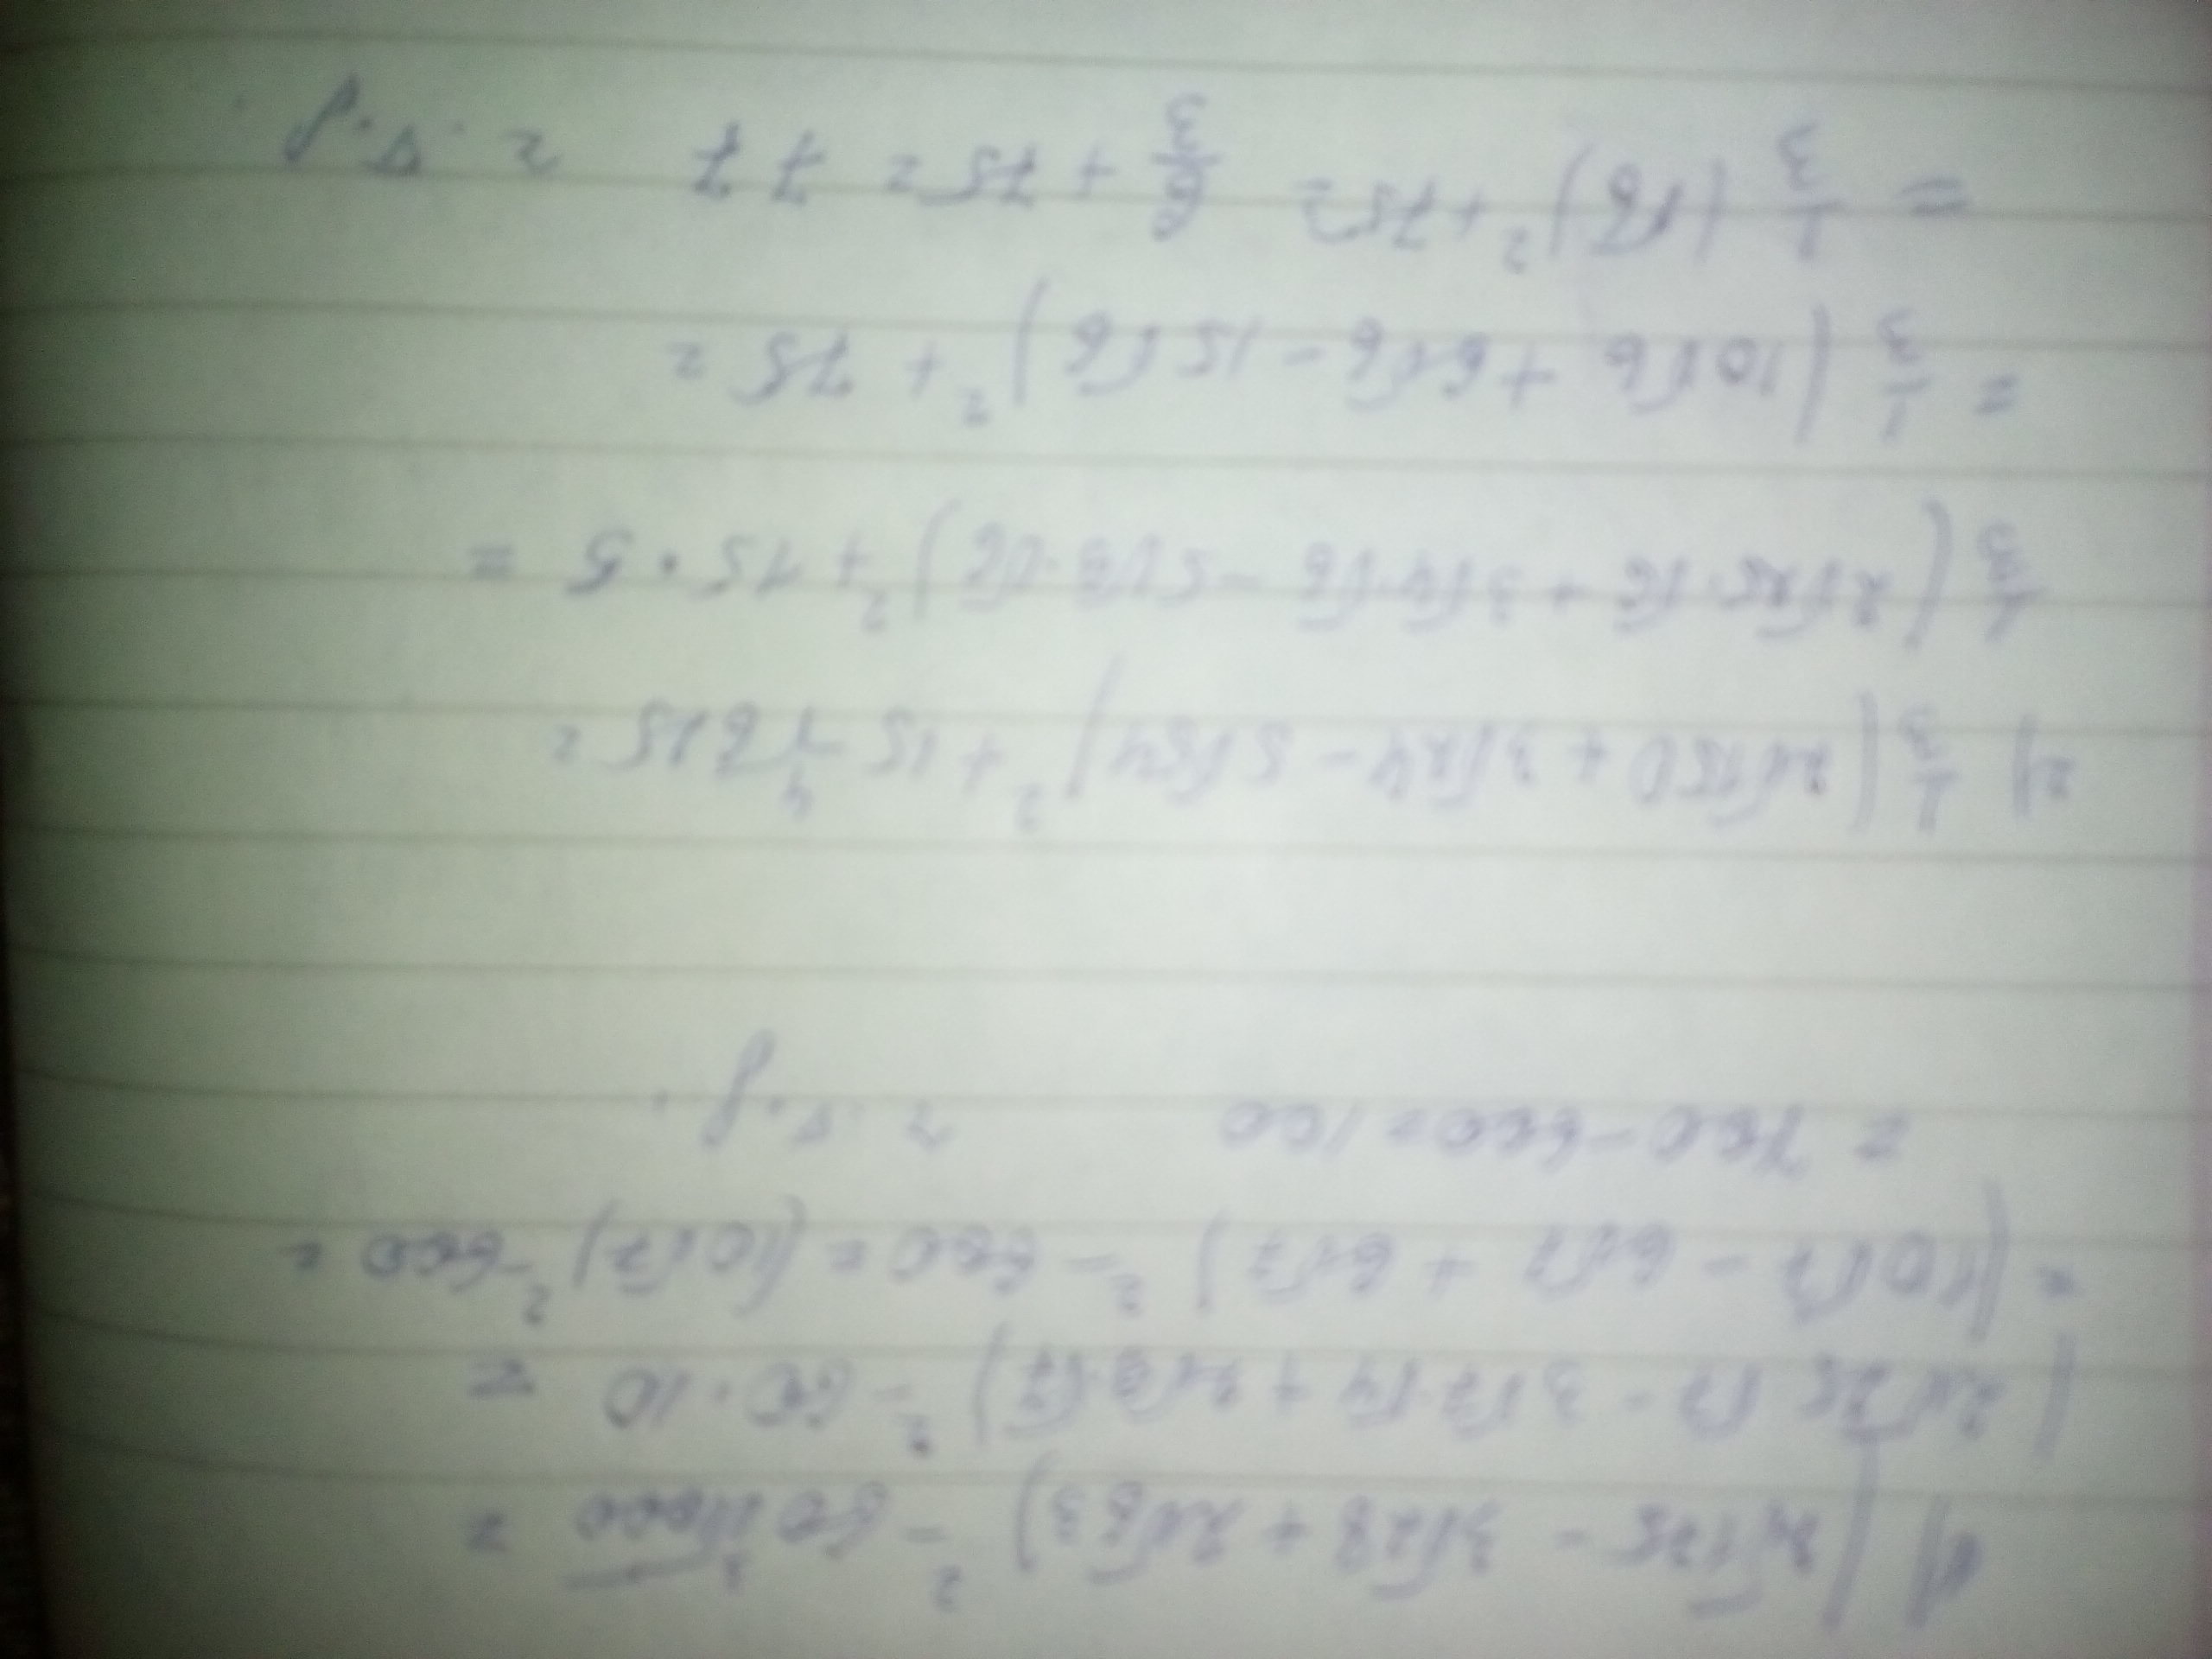 1) (2√175 - 3√28 + 2√63)² - 60∛1000 =
(2√25 √7 - 3√7·√4 + 2√9·√7)² - 60·10 =
= (10√7 - 6√7 + 6√7)² - 600 = (10√7)² - 600 =
= 700 - 600 = 100
2) 1/3 (2√150 + 3√24 - 5√54)² + 15 ⁴√625 =
1/3 (2√25·√6 + 3√4·√6 - 5√9·√6)² + 15·5 =
= 1/3 (10√6 + 6√6 - 15√6)² + 75 =
= 1/3 (√6)² + 75 = 6/3 + 75 = 77